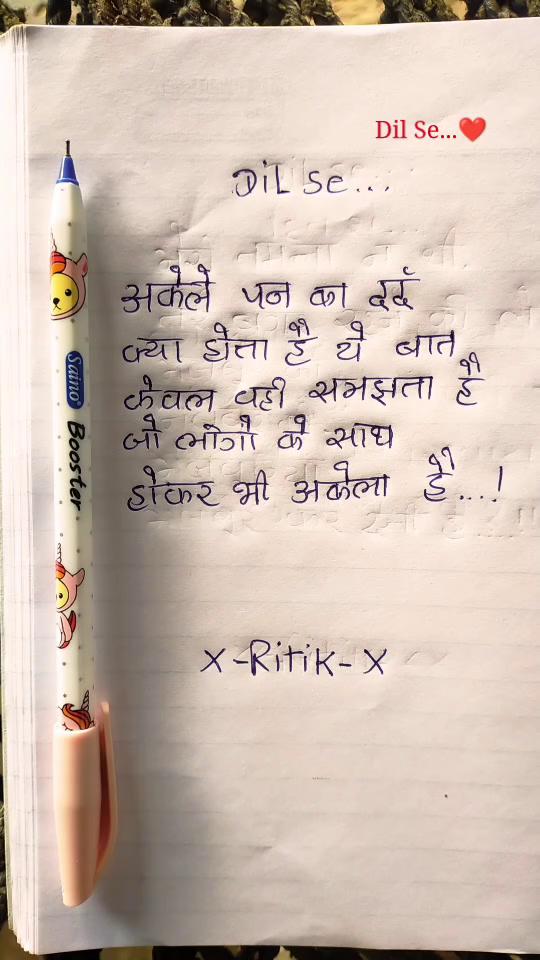 Dil Se...❤️
DiL Se...
अकेले पन का दर्द
क्या होता है ये बात
केवल वही समझता है
जो लोगो के साथ
होकर भी अकेला है...!
X-Ritik-X
Saino Booster